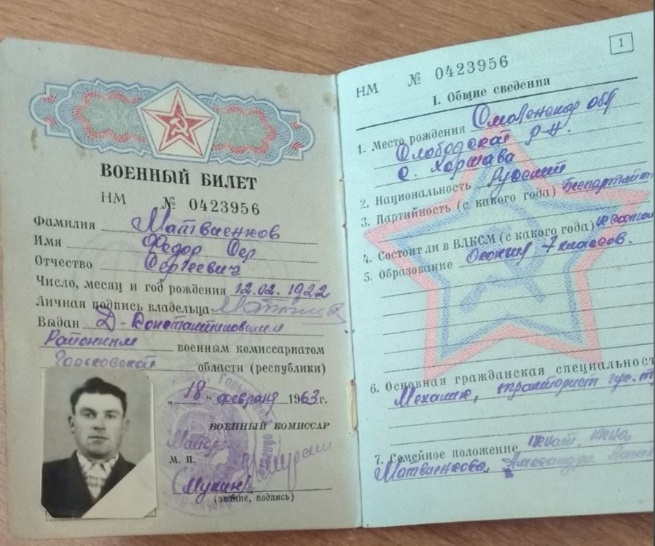 ВОЕННЫЙ БИЛЕТ
НМ № 0423956
Фамилия Матвиенков
Имя Федор Сер
Отчество Сергеевич
Число, месяц и год рождения 12.02.1922
Личная подпись владельца
Выдан Д-Константиновским
Районным военным комиссариатом
Горьковской области (республики)
„18" февраля 1963 г.
ВОЕННЫЙ КОМИССАР
Майор
М. П.
(Мухин)
(звание, подпись)
НМ № 0423956
1
I. Общие сведения
1. Место рождения Смоленская обл
Слободской р-н.
с. Коржава
2. Национальность Русский
3. Партийность (с какого года) беспартийн
4. Состоит ли в ВЛКСМ (с какого года)
5. Образование Окончил 7 классов.
6. Основная гражданская специальност
Механик, тракторист
7. Семейное положение женат. жена,
Матвиенкова, Александра